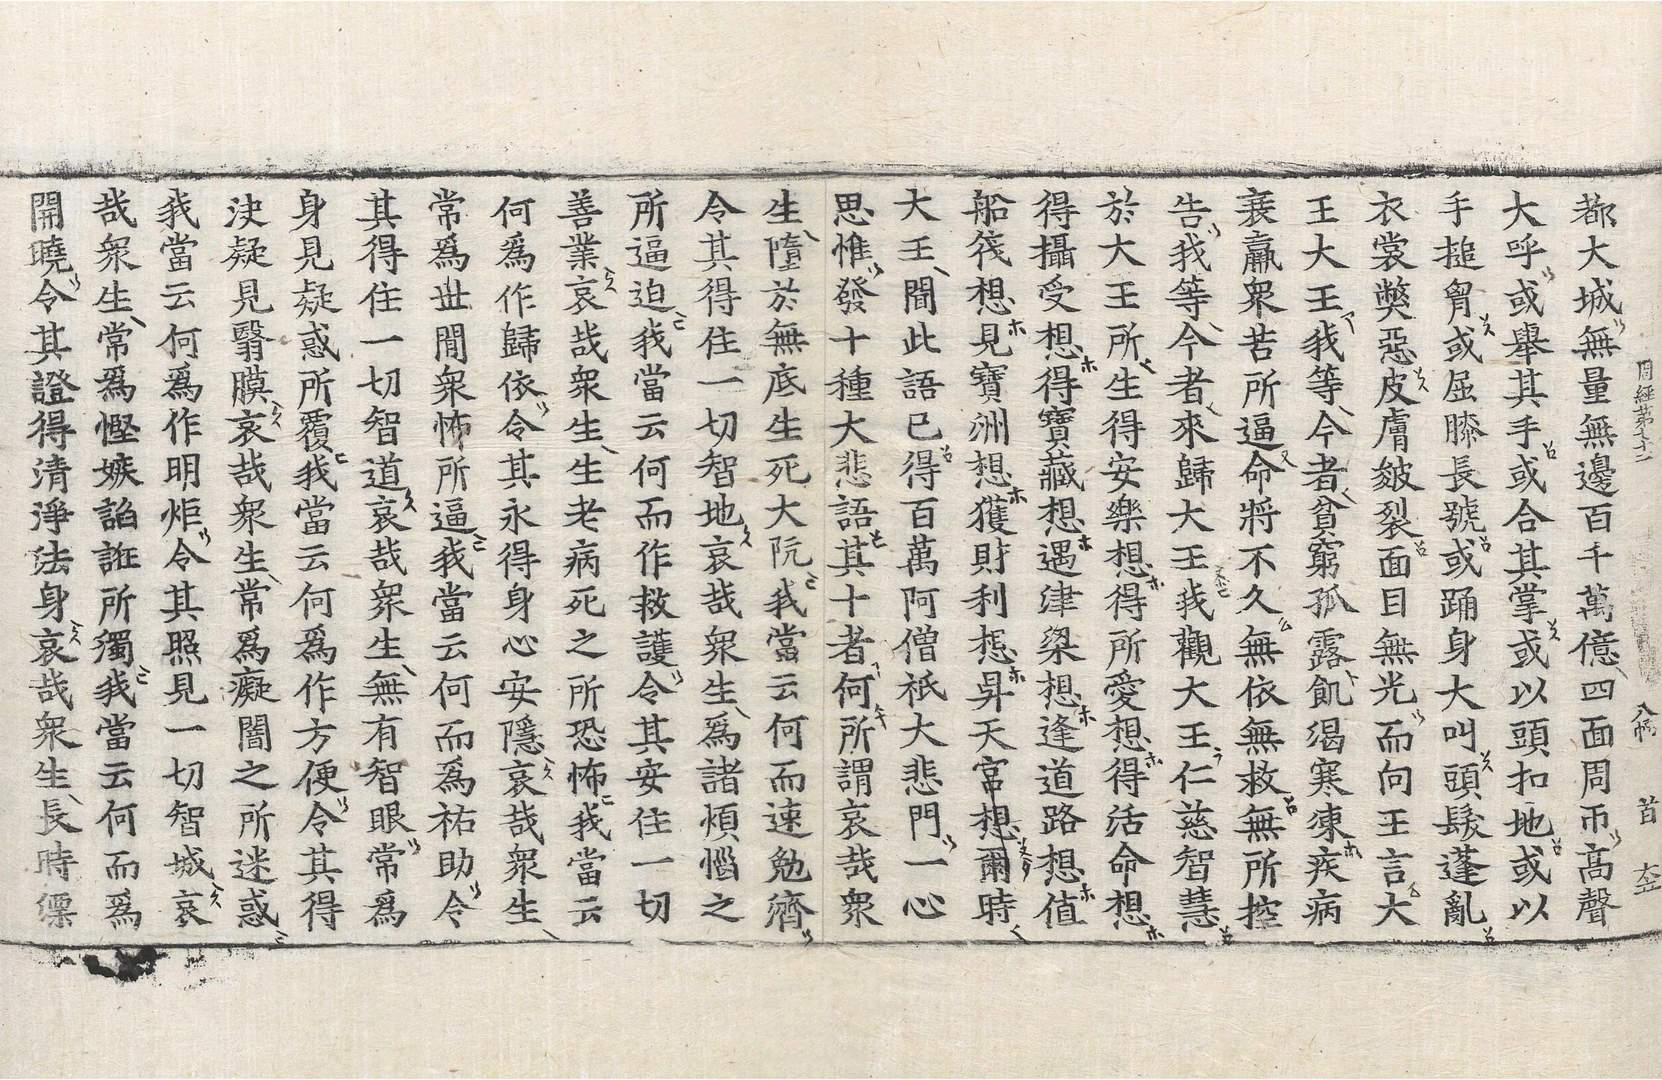 都大城無量無邊百千萬億四面周帀高聲
大呼或舉其手或合其掌或以頭扣地或以
手搥胷或屈膝長號或踊身大叫頭髮蓬亂
衣裳弊惡皮膚皴裂面目無光而向王言大
王大王我等今者貧窮孤露飢渴寒凍疾病
衰羸衆苦所逼命將不久無依無救無所控
告我等今者來歸大王我觀大王仁慈智慧
於大王所生得安樂想得所愛想得活命想
得攝受想得寶藏想遇津梁想逢道路想值
船筏想見寶洲想獲財利想昇天宮想爾時
大王聞此語已得百萬阿僧祇大悲門一心
思惟發十種大悲語其十者何所謂哀哉衆
生墮於無底生死大阬我當云何而速勉濟
令其得住一切智地哀哉衆生爲諸煩惱之
所逼迫我當云何而作救護令其安住一切
善業哀哉衆生生老病死之所恐怖我當云
何爲作歸依令其永得身心安隱哀哉衆生
常爲世間衆怖所逼我當云何而爲祐助令
其得住一切智道哀哉衆生無有智眼常爲
身見疑惑所覆我當云何爲作方便令其得
決疑見翳膜哀哉衆生常爲癡闇之所迷惑
我當云何爲作明炬令其照見一切智城哀
哉衆生常爲慳嫉諂誑所濁我當云何而爲
開曉令其證得清淨法身哀哉衆生長時漂